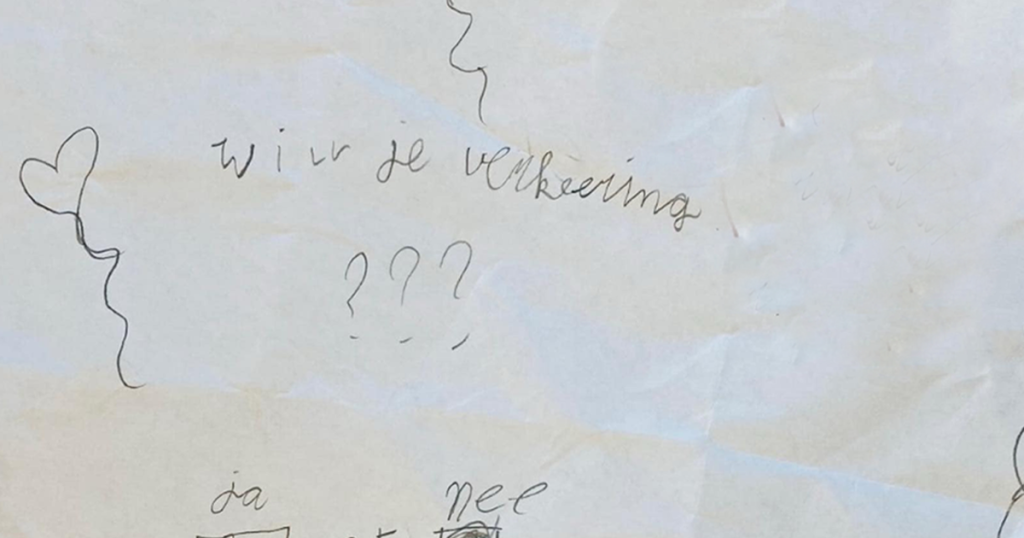 wil je verkeering
???
ja nee